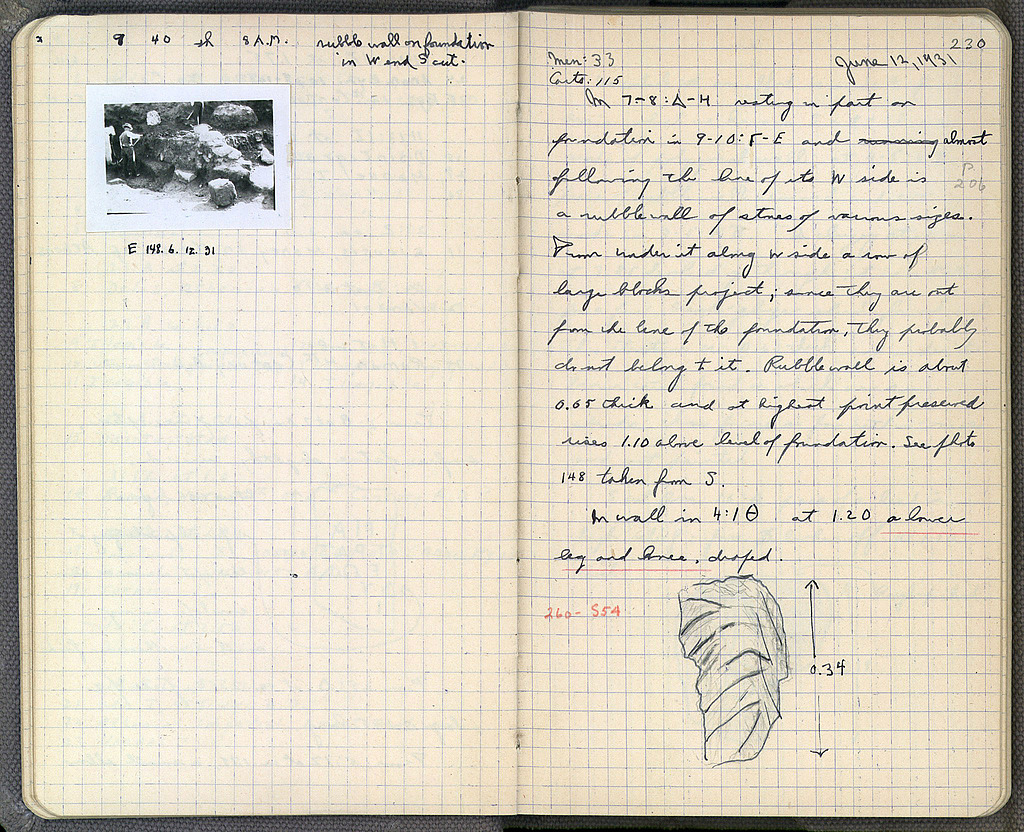 9 40 sh 8 A.M. rubble wall on foundation
in W end S cut.
E 148. 6. 12. 31
230
Men: 33 June 12, 1931
Carts: 115
In 7-8:Δ-H resting in part on
foundation in 9-10:F-E and running almost
following the line of its W side is
P. 206
a rubble wall of stones of various sizes.
From under it along W side a row of
large blocks project; since they are out
from the line of the foundation, they probably
do not belong to it. Rubble wall is about
0.65 thick and at highest point preserved
rises 1.10 above level of foundation. See photo
148 taken from S.
In wall in 4:1Θ at 1.20 a lower
leg and knee, draped.
260- S54
0.34